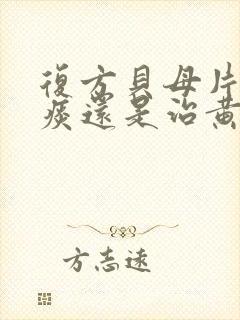 復方貝母片
痰還是治黃
方志遠